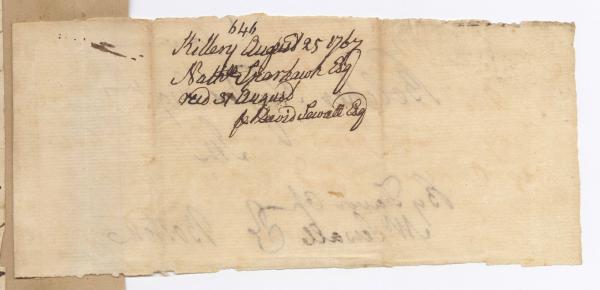 646
Killery August 25 1767
Nathll Sparhawk Esq
recd 31 August
pr David Sewall Esq